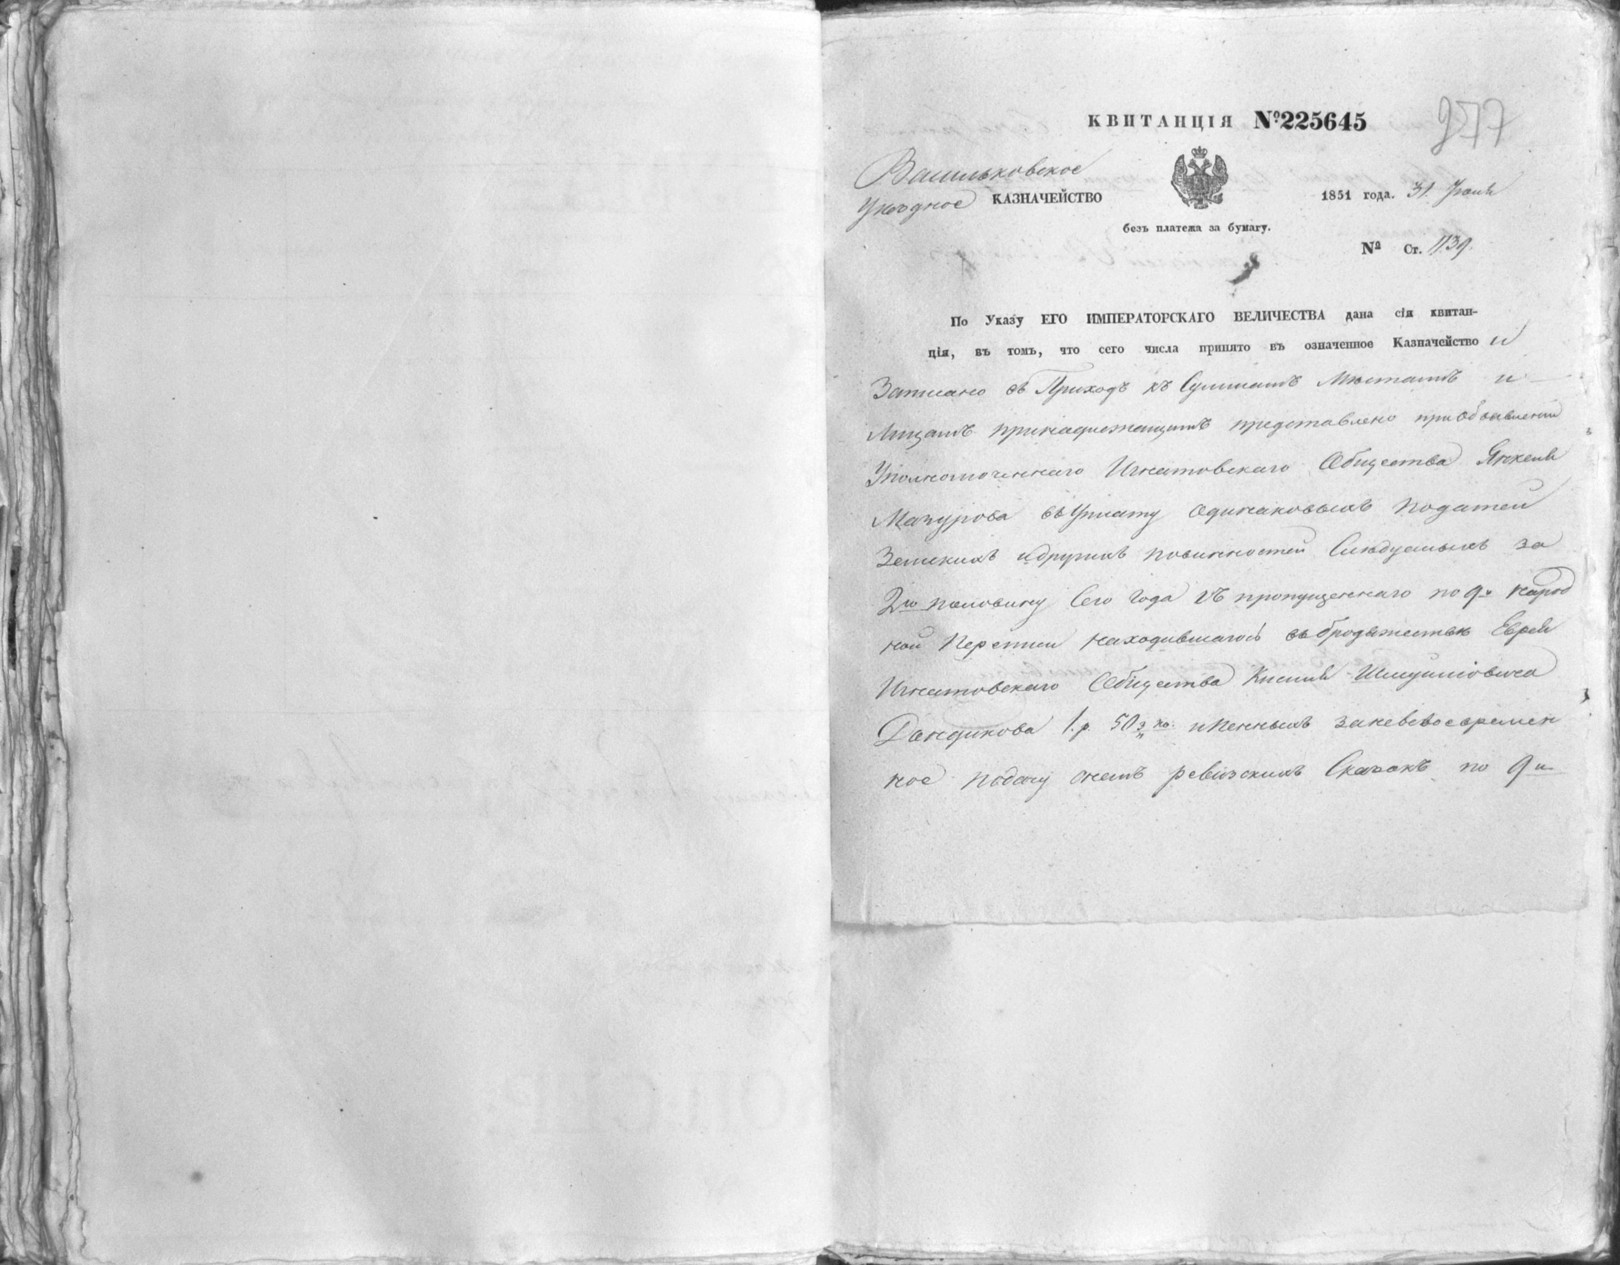 КВИТАНЦІЯ №225645
277
Васильковское
Уѣздное КАЗНАЧЕЙСТВО
1851 года. 31 Іюля
безъ платежа за бумагу.
№ Ст. 1139.
По Указу ЕГО ИМПЕРАТОРСКАГО ВЕЛИЧЕСТВА дана сія квитан-
ція, въ томъ, что сего числа принято въ означенное Казначейство и
Записано въ Приходъ къ Суммамъ Мѣстамъ и
Лицамъ принадлежащимъ представлено при Объявленіи
Уполномоченнаго Игнатовскаго Общества Янкеля
Мазурова въ Уплату одинаковыхъ податей
Земскихъ и другихъ повинностей Слѣдуемыхъ за
2ю половину Сего Года съ пропущеннаго по 9й народ
ной Переписи находившагося въ бродяжествѣ Еврея
Игнатовскаго Общества Шмуліовича
1 р. 50 3/4 ко. и пенныхъ за невсвоевремен
ное подачу онемъ ревизскихъ Сказокъ по 9й